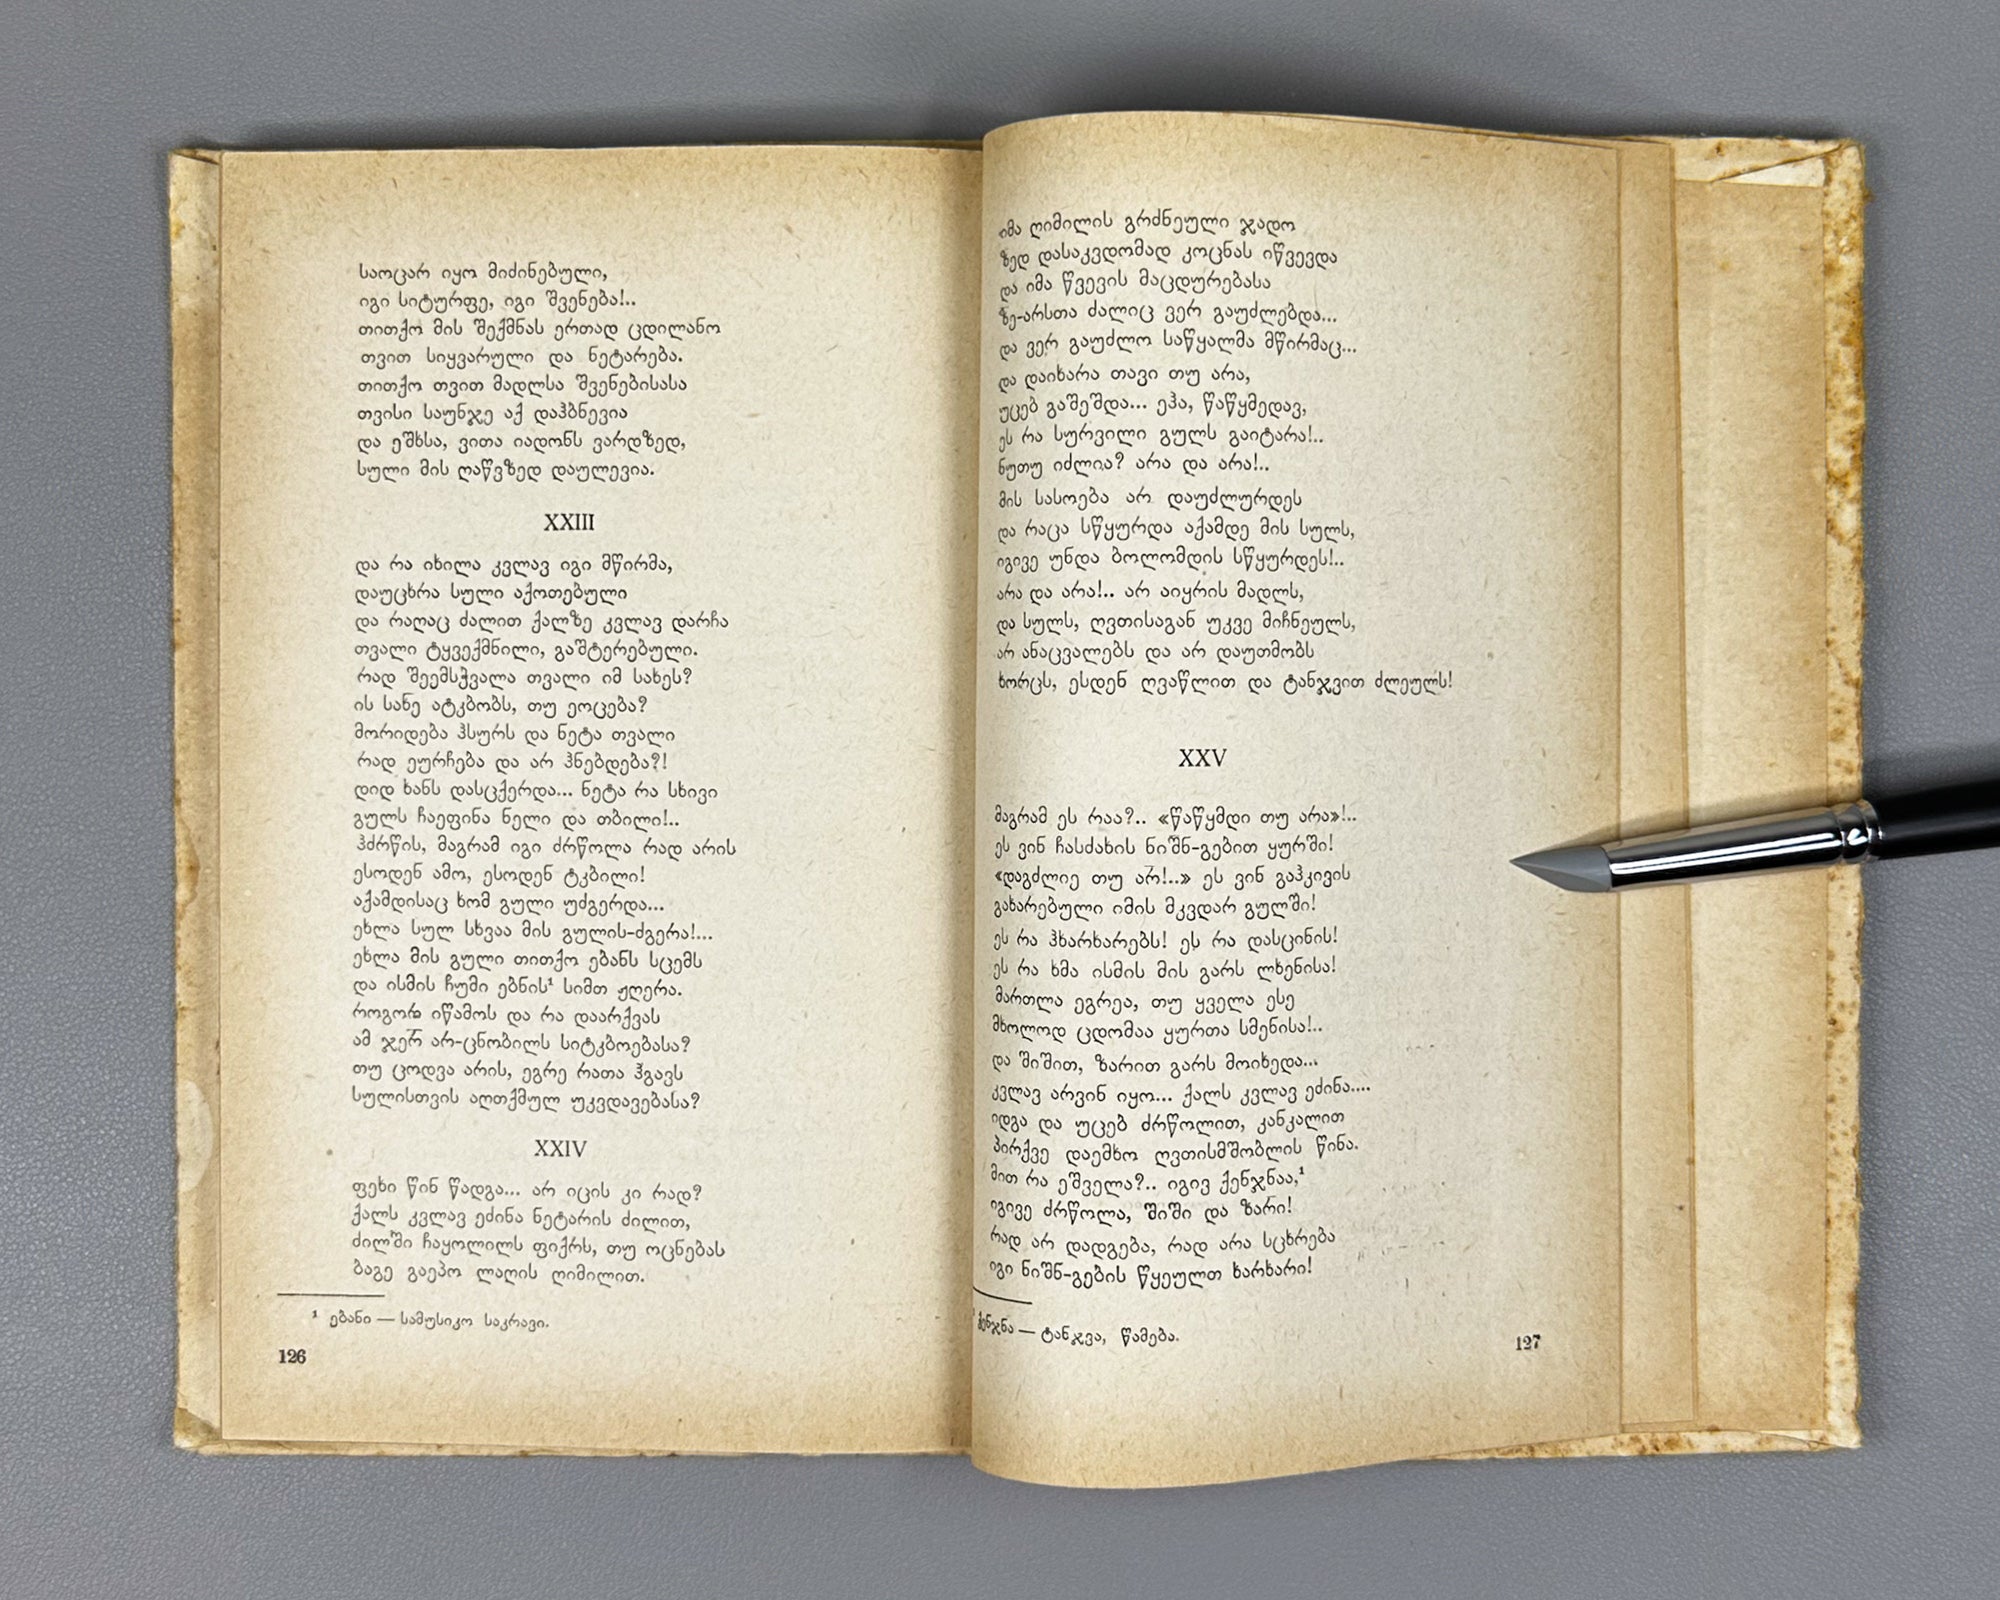 საოცარ იყო მიძინებული,
იგი სიტურფე, იგი შვენება!..
თითქო მის შექმნას ერთად ცდილანო
თვით სიყვარული და ნეტარება.
თითქო თვით მადლსა შვენებისასა
თვისი საუნჯე აქ დაჰბნევია
და ეშხსა, ვითა იადონს ვარდზედ,
სული მის ღაწვზედ დაულევია.
XXIII
და რა იხილა კვლავ იგი მწირმა,
დაუცხრა სული აქოთებული
და რაღაც ძალით ქალზე კვლავ დარჩა
თვალი ტყვექმნილი, გაშტერებული.
რად შეემსჭვალა თვალი იმ სახეს?
ის სახე ატკბობს, თუ ეოცება?
მორიდება ჰსურს და ნეტა თვალი
რად ეურჩება და არ ჰნებდება?!
დიდ ხანს დასცქერდა... ნეტა რა სხივი
გულს ჩაეფინა ნელი და თბილი!..
ჰძრწის, მაგრამ იგი ძრწოლა რად არის
ესოდენ ამო, ესოდენ ტკბილი!
აქამდისაც ხომ გული უძგერდა...
ეხლა სულ სხვაა მის გულის-ძგერა!...
ეხლა მის გული თითქო ებანს სცემს
და ისმის ჩუმი ებნის¹ სიმთ ჟღერა.
როგორ იწამოს და რა დაარქვას
ამ ჯერ არ-ცნობილს სიტკბოებასა?
თუ ცოდვა არის, ეგრე რათა ჰგავს
სულისთვის აღთქმულ უკვდავებასა?
XXIV
ფეხი წინ წადგა... არ იცის კი რად?
ქალს კვლავ ეძინა ნეტარის ძილით,
ძილში ჩაყოლილს ფიქრს, თუ ოცნებას
ბაგე გაეპო ლაღის ღიმილით.
¹ ებანი — სამუსიკო საკრავი.
126
იმა ღიმილის გრძნეული ჯადო
ზედ დასაკვდომად კოცნას იწვევდა
და იმა წვევის მაცდურებასა
ზე-არსთა ძალიც ვერ გაუძლებდა...
და ვერ გაუძლო საწყალმა მწირმაც...
და დაიხარა თავი თუ არა,
უცებ გაშეშდა... ეჰა, წაწყმედავ,
ეს რა სურვილი გულს გაიტარა!..
ნუთუ იძლია? არა და არა!..
მის სასოება არ დაუძლურდეს
და რაცა სწყურდა აქამდე მის სულს,
იგივე უნდა ბოლომდის სწყურდეს!..
არა და არა!.. არ აიყრის მადლს,
და სულს, ღვთისაგან უკვე მიჩნეულს,
არ ანაცვალებს და არ დაუთმობს
ხორცს, ესდენ ღვაწლით და ტანჯვით ძლეულს!
XXV
მაგრამ ეს რაა?.. «წაწყმდი თუ არა»!..
ეს ვინ ჩასძახის ნიშნ-გებით ყურში!
«დაგძლიე თუ არ!..» ეს ვინ გაჰკივის
გახარებული იმის მკვდარ გულში!
ეს რა ჰხარხარებს! ეს რა დასცინის!
ეს რა ხმა ისმის მის გარს ლხენისა!
მართლა ეგრეა, თუ ყველა ესე
მხოლოდ ცდომაა ყურთა სმენისა!..
და შიშით, ზარით გარს მოიხედა...
კვლავ არვინ იყო... ქალს კვლავ ეძინა....
იდგა და უცებ ძრწოლით, კანკალით
პირქვე დაემხო ღვთისმშობლის წინა.
მით რა ეშველა?.. იგივ ქენჯნაა,¹
იგივე ძრწოლა, შიში და ზარი!
რად არ დადგება, რად არა სცხრება
იგი ნიშნ-გების წყეულთ ხარხარი!
ქენჯნა — ტანჯვა, წამება.
127